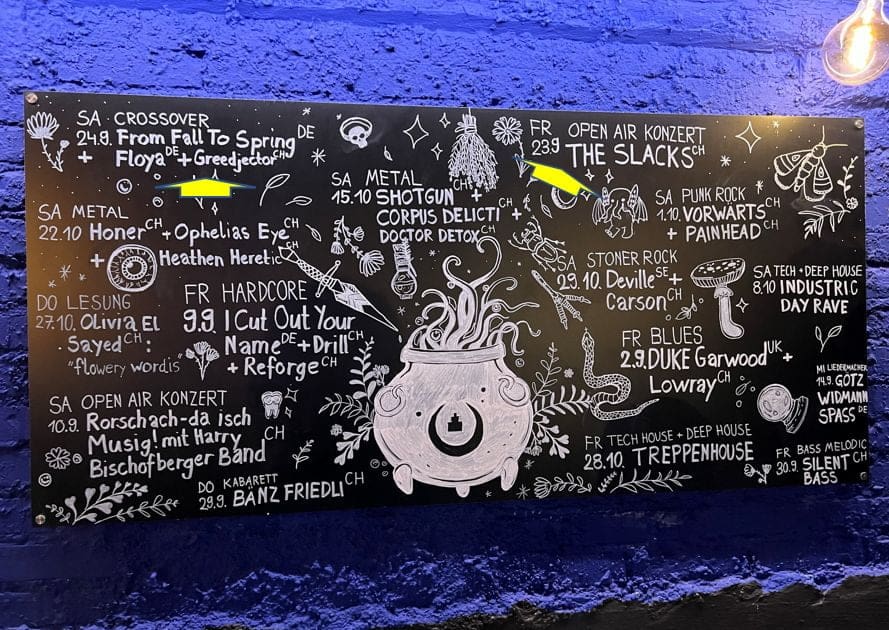 SA CROSSOVER
24.9. From Fall To Spring DE
+ Floya DE + Greedjector CH
SA METAL
22.10 Honer CH + Ophelias Eye CH
+ Heathen Heretic CH
DO LESUNG
27.10. Olivia El
Sayed CH:
"flowery wordis"
FR HARDCORE
9.9. I Cut Out Your
Name DE + Drill CH
+ Reforge CH
SA OPEN AIR KONZERT
10.9. Rorschach-da isch
Musig! mit Harry
Bischofberger Band CH
DO KABARETT
29.9. BÄNZ FRIEDLI CH
SA METAL
15.10 SHOTGUN CH +
CORPUS DELICTI CH +
DOCTOR DETOX CH
FR OPEN AIR KONZERT
23.9 THE SLACKS CH
SA PUNK ROCK
1.10. VORWÄRTS CH
+ PAINHEAD CH
SA STONER ROCK
29.10. Deville SE +
Carson CH
SA TECH + DEEP HOUSE
8.10 INDUSTRIC
DAY RAVE
FR BLUES
2.9. DUKE Garwood UK +
Lowray CH
MI LIEDERMACHER
14.9. GÖTZ
WIDMANN
SPASS DE
FR TECH HOUSE + DEEP HOUSE
28.10. TREPPENHOUSE
FR BASS MELODIC
30.9. SILENT CH
BASS